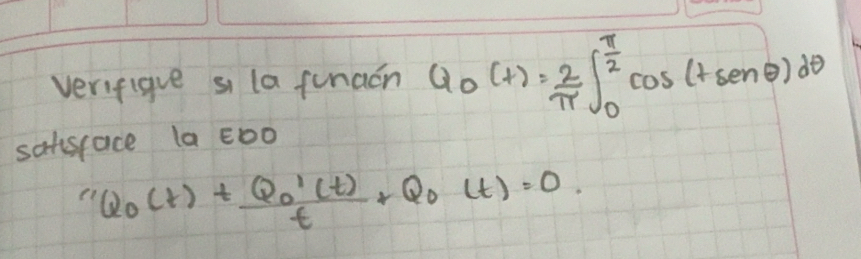 Verifique si la función Q₀(t) = \frac{2}{π} ∫_0^{\frac{π}{2}} cos(t sen θ) dθ
satisface la EDO
''Q₀(t) + \frac{Q₀'(t)}{t} + Q₀(t) = 0.